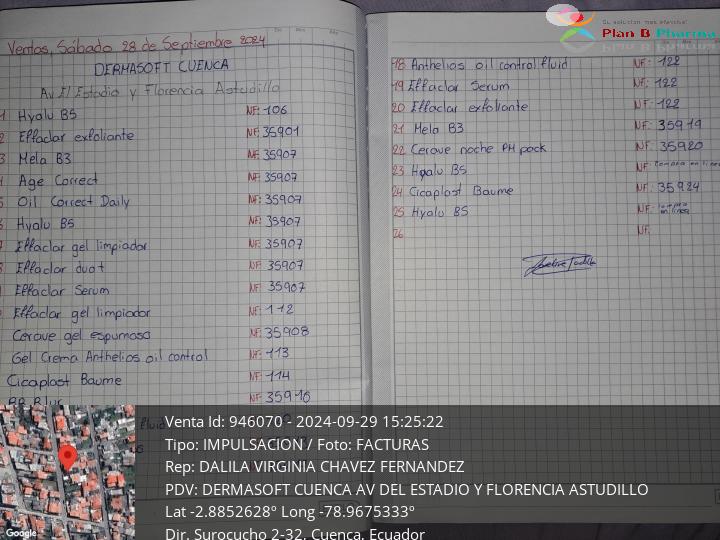 Ventas, Sábado 28 de Septiembre 2024
DERMASOFT CUENCA
Av El Estadio y Florencia Astudillo
1 Hyalu B5 NF: 106
2 Effaclar exfoliante NF: 35901
3 Mela B3 NF: 35907
Age Correct NF: 35907
5 Oil Correct Daily NF: 35907
6 Hyalu B5 NF: 35907
Effaclar gel limpiador NF: 35907
Effaclar duo+ NF: 35907
Effaclar Serum NF: 35907
Effaclar gel limpiador NF: 112
Cerave gel espumoso NF: 35908
Gel Crema Anthelios oil control NF: 113
Cicaplast Baume NF: 114
BB Blur NF: 35910
fluid
18 Anthelios oil control fluid NF: 122
19 Effaclar Serum NF: 122
20 Effaclar exfoliante NF: 122
21 Mela B3 NF: 35919
22 Cerave noche PM pack NF: 35920
23 Hyalu B5 NF: compra en linea
24 Cicaplast Baume NF: 35924
25 Hyalu B5 NF: compra en linea
26 NF:
Su solución más efectiva!
Plan B Pharma
Venta Id: 946070 - 2024-09-29 15:25:22
Tipo: IMPULSACION / Foto: FACTURAS
Rep: DALILA VIRGINIA CHAVEZ FERNANDEZ
PDV: DERMASOFT CUENCA AV DEL ESTADIO Y FLORENCIA ASTUDILLO
Lat -2.8852628º Long -78.9675333º
Dir. Surocucho 2-32, Cuenca, Ecuador
Google